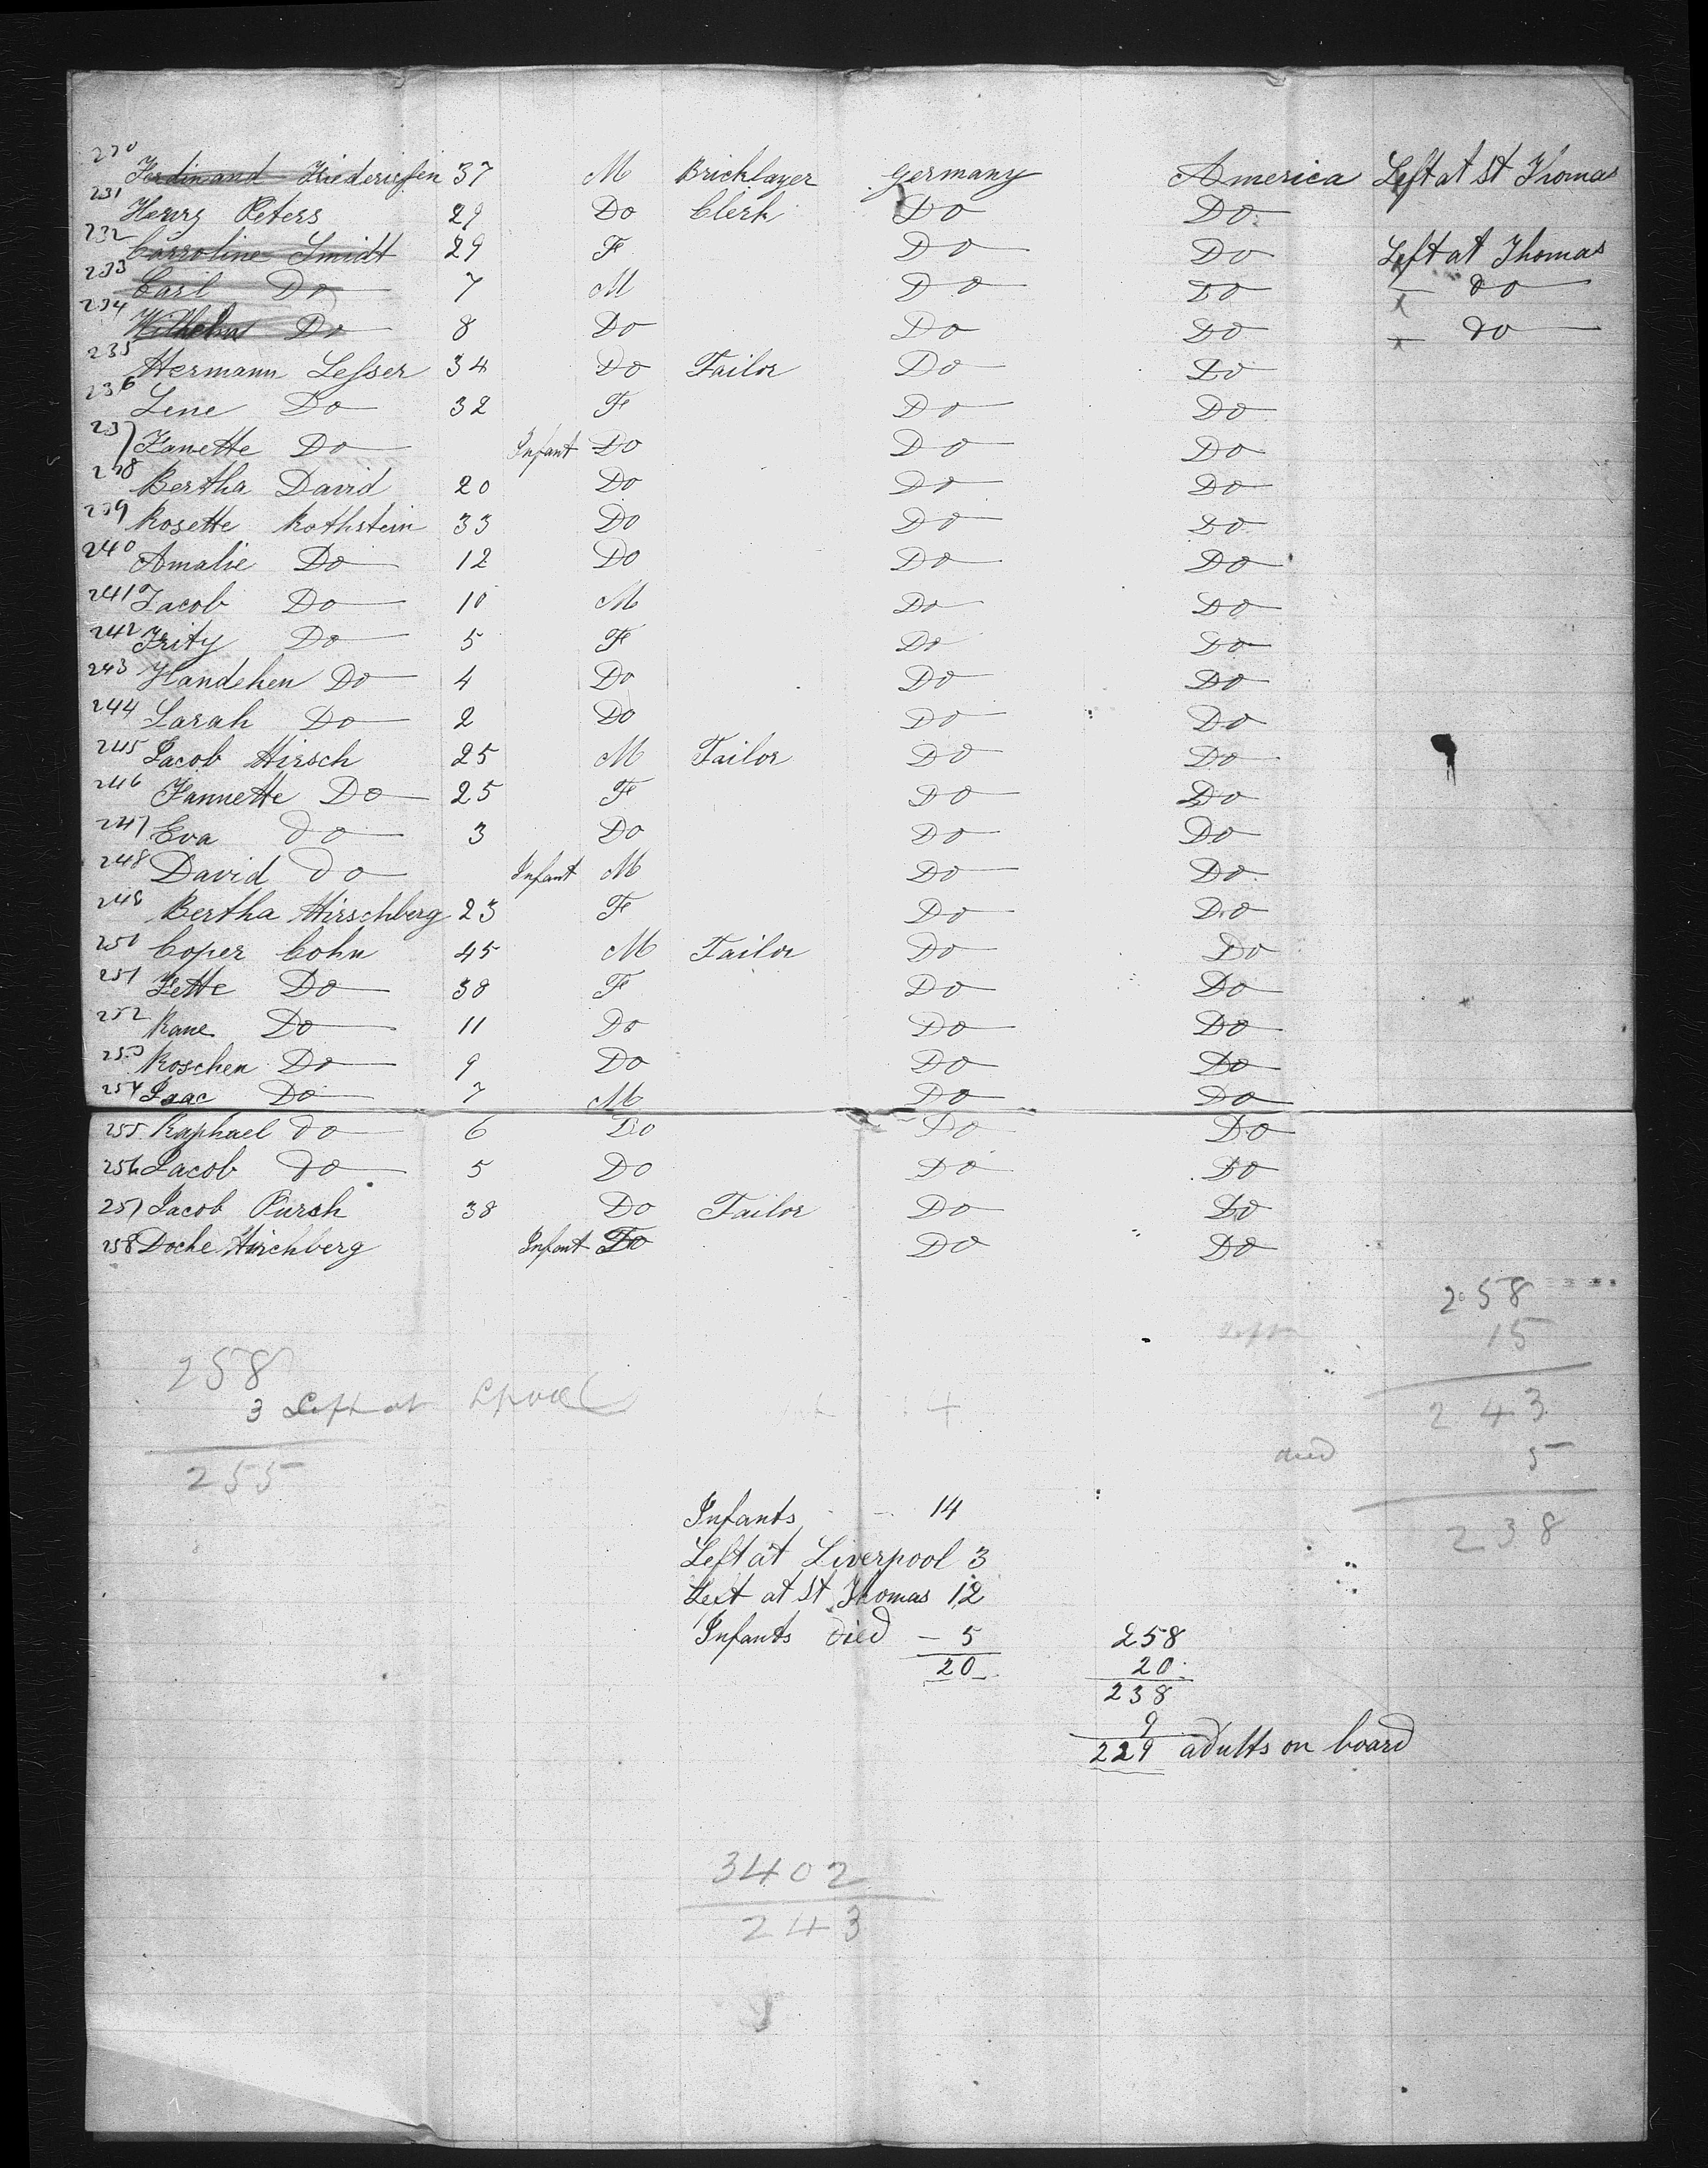 230 Ferdinand Friederichsen 37 M Bricklayer Germany America Left at St Thomas
231 Henry Peters 29 Do Clerk Do Do
232 Carroline Smidt 29 F Do Do Left at Thomas
233 Carl Do 7 M Do Do do
234 Wilhelm Do 8 Do Do Do do
235 Hermann Lesser 34 Do Tailor Do Do
236 Lene Do 32 F Do Do
237 Janette Do Infant Do Do Do
238 Bertha David 20 Do Do Do
239 Rosette Rothstein 33 Do Do Do
240 Amalie Do 12 Do Do Do
241 Jacob Do 10 M Do Do
242 Frity Do 5 F Do Do
243 Handchen Do 4 Do Do Do
244 Sarah Do 2 Do Do Do
245 Jacob Hirsch 25 M Tailor Do Do
246 Jannette Do 25 F Do Do
247 Eva do 3 Do Do Do
248 David do Infant M Do Do
248 Bertha Hirschberg 23 F Do Do
250 Coper Cohn 45 M Tailor Do Do
251 Jette Do 38 F Do Do
252 Rane Do 11 Do Do Do
253 Roschen Do 9 Do Do Do
254 Isaac Do 7 M Do Do
255 Raphael do 6 Do Do Do
256 Jacob do 5 Do Do Do
257 Jacob Pursh 38 Do Tailor Do Do
258 Doche Hirchberg Infant Do Do Do
258
15
258
3 Left at Lpool
243
died 5
255
238
Infants 14
Left at Liverpool 3
Left at St Thomas 12
Infants died - 5 258
20 20
238
9
229 adults on board
3402
243